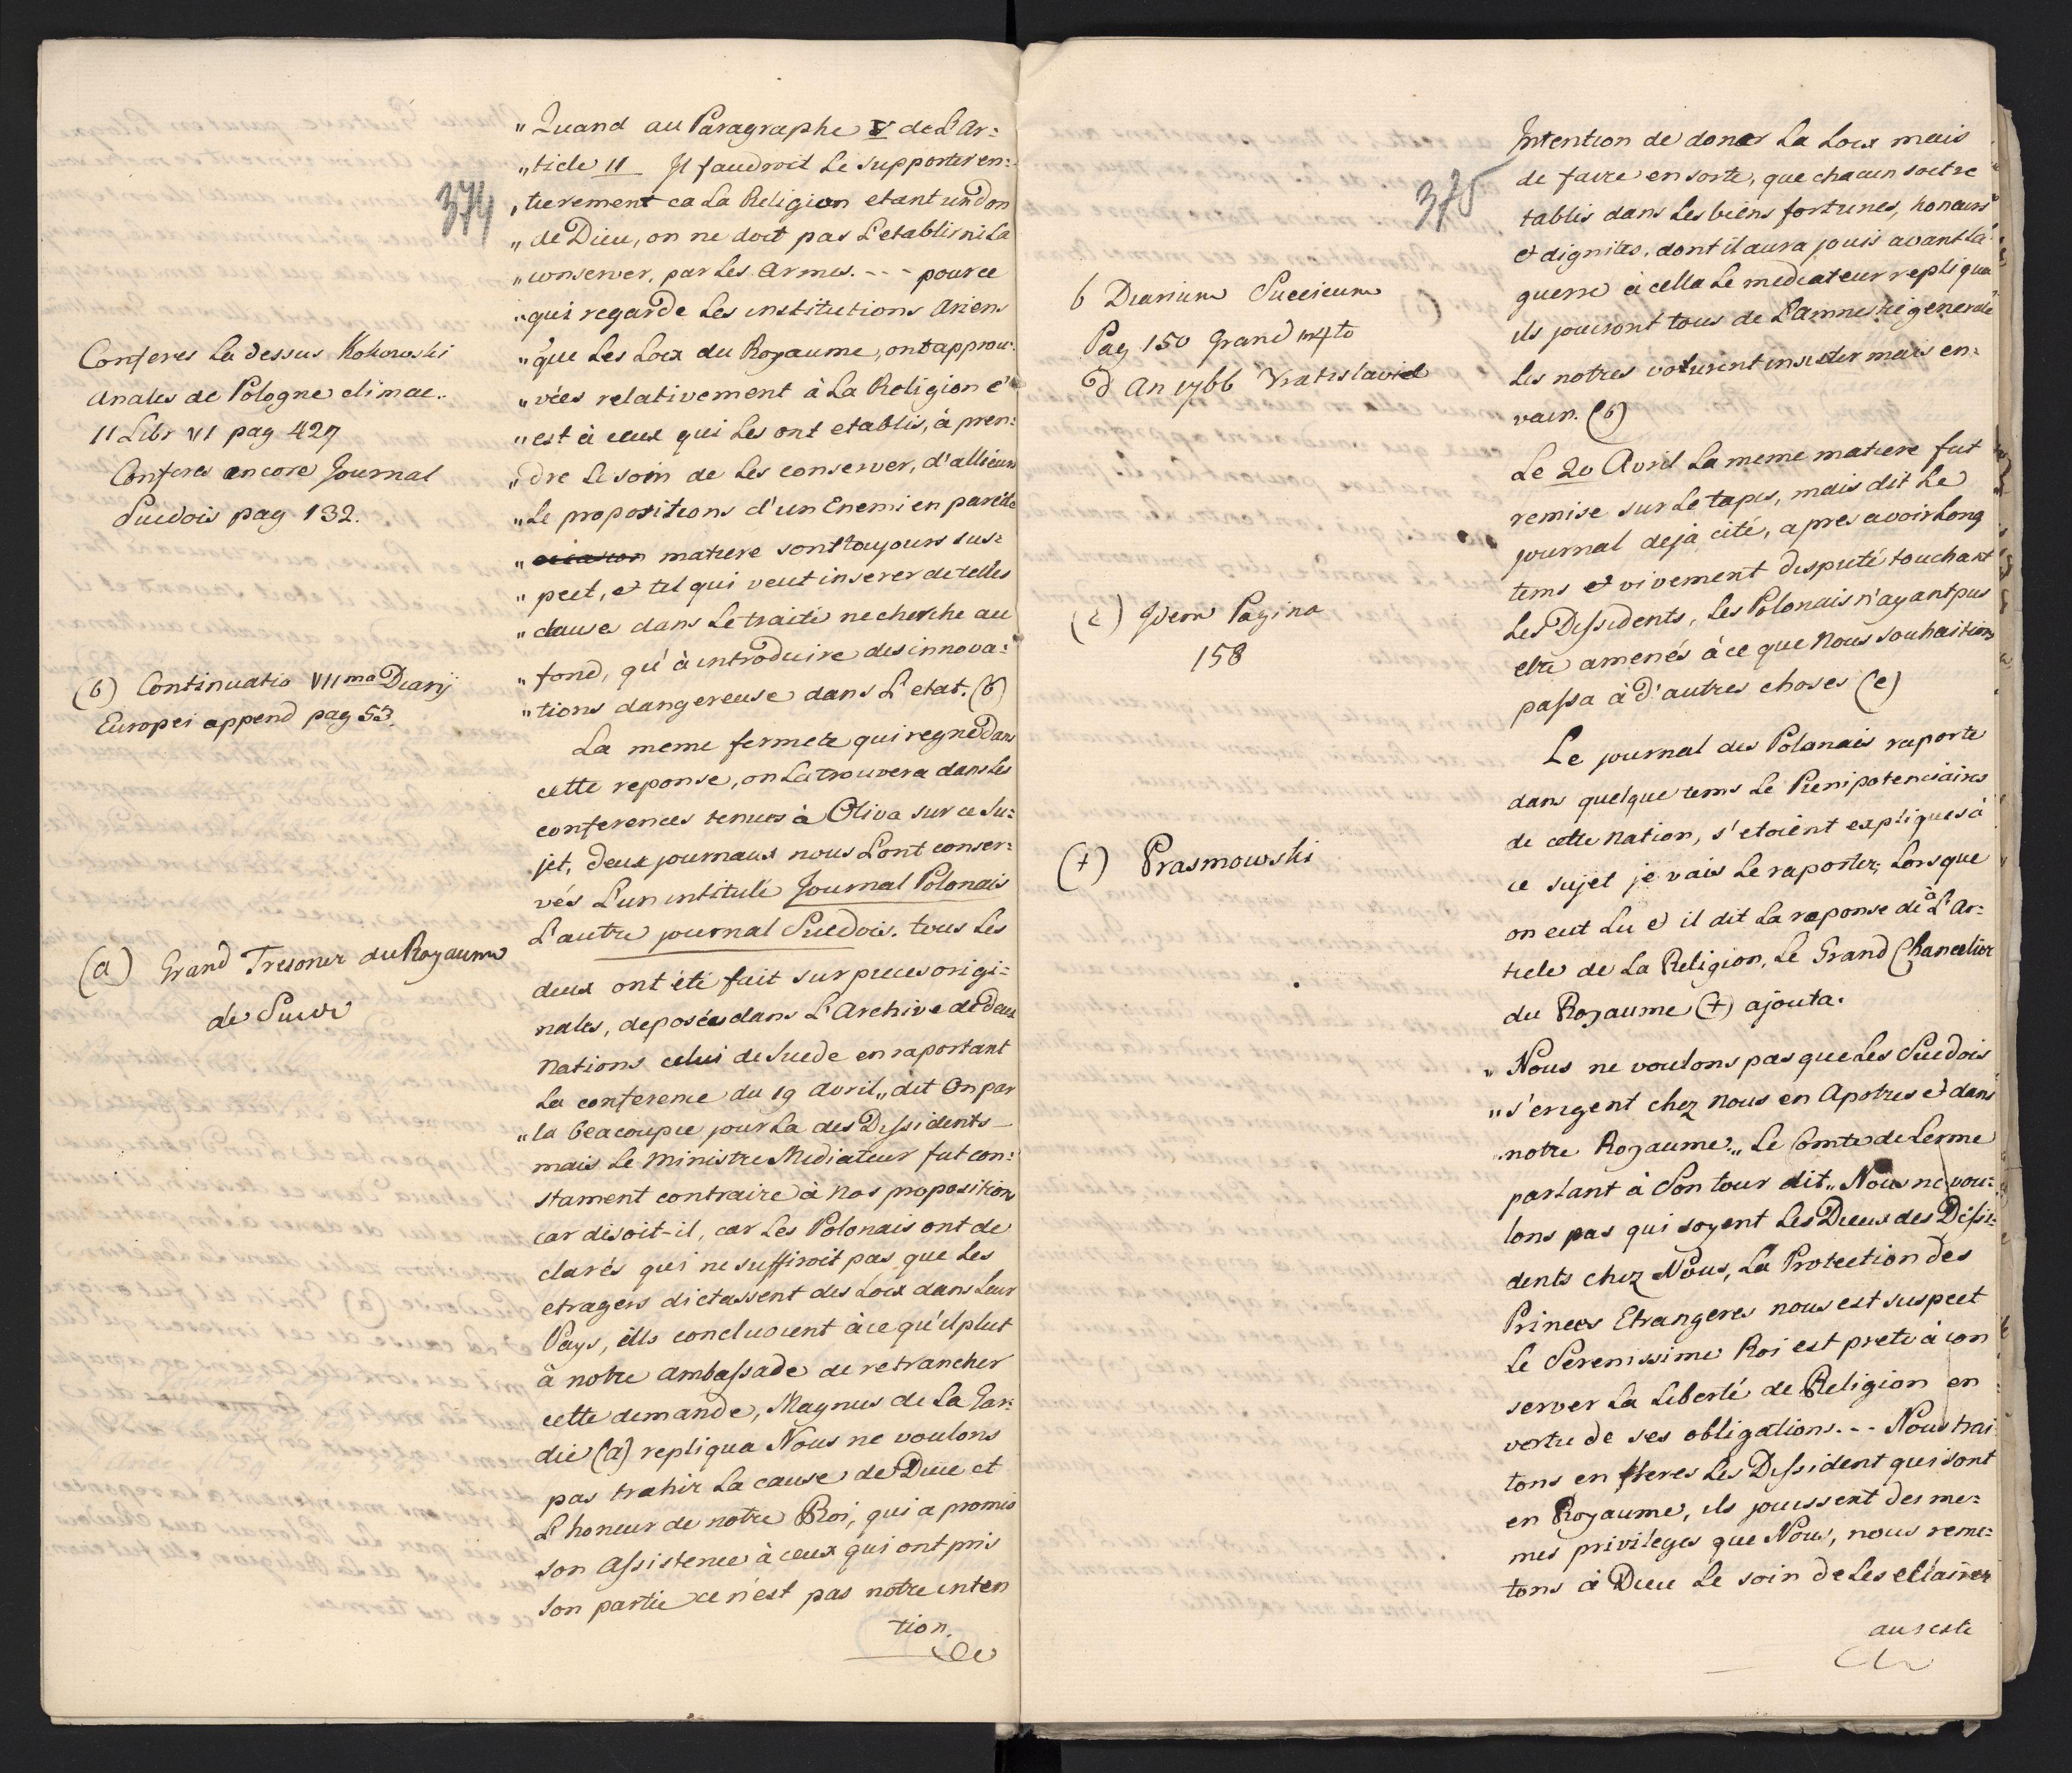 374
Conferes La dessus Kohowski
Anales de Pologne climac..
11 Libr VI pag 427
Conferes encore Journal
Suedois pag 132.
(b) Continuatio VII ma Diarij
Europei append pag 53.
(a) Grand Tresorier du Royaume
de Suede
„ Quand au Paragraphe V de L'Ar:
„ ticle 11 Il faudroit Le supporter en:
„ tierement ca La Religion etant un don
„ de Dieu, on ne doit pas L'etablir ni La
„ conserver, par Les Armes. - - - pour ce
„ qui regarde Les institutions Anciens
„ que Les Loix du Royaume, ont approu:
„ vées relativement à La Religion c'
„ est à ceux qui Les ont etablis, à pren:
„ dre Le soin de Les conserver, d'allieurs
„ Le propositions d'un Enemi en pareille
„ occasion matiere sont toujours sus:
„ pect, et tel qui veut inserer de telles
„ clauses dans Le traité ne cherche au
„ fond, qu'à introduire des innova:
„ tions dangereuse dans L'etat. (b)
La meme fermete qui regne dans
cette reponse, on La trouvera dans Les
conferences tenues à Oliva sur ce Su:
jet, deux journaux nous L'ont conser:
vés L'un intitulé Journal Polonais
L'autre journal Suedois. tous Les
deux ont été fait sur pieces origi:
nales, deposées dans L'Archive de deux
Nations celui de Suede en raportant
La conference du 19 Avril „ dit On par
„ la beacoupie jour La des Dissidents
mais Le Ministre Mediateur fut con:
stament contraire à nos proposition
car disoit-il, car Les Polonais ont de
clarés qui ne suffiroit pas que Les
etragers dictassent des Loix dans Leur
Pays, ills concluoient à ce qu'il plut
à notre ambassade de retrancher
cette demande, Magnus de La Gar:
die (a) repliqua Nous ne voulons
pas trahir La cause de Dieu et
L'honeur de notre Roi, qui a promis
son Assistence à ceux qui ont pris
son partie ce n'est pas notre inten
tion.
375
b Diarium Suecicum
Pag 150 Grand in 4to
d An 1766 Vratislaviæ
(c) Idem Pagina
158
(+) Prasmowski
Intention de doner La Loix mais
de faire en sorte, que chacun soit re
tablis dans Les biens fortunes, honeurs
et dignites, dont il aura jouis avant La
guerre à cella Le mediateur repliqua
ils jouiront tous de L'amnestie generale
Les notres voturent insister mais en:
vain. (b)
Le 20 Avril La meme matiere fut
remise sur Le tapis, mais dit Le
journal deja cité, apres avoir Long
tems et vivement disputé touchant
Les Dissidents, Les Polonais n'ayant pus
etre amenés à ce que nous souhaitions
passa à d'autres choses (c)
Le journal des Polanais raporte
dans quelque tems Le Plenipotenciaires
de cette nation, s'etoient expliques à
ce sujet je vais Le raporter; Lorsque
on eut Lu e il dit La reponse de à L'Ar:
ticle de La Religion, Le Grand Chancelier
du Royaume (+) ajouta.
„ Nous ne voulons pas que Les Suedois
„ s'erigent chez nous en Apotres et dans
notre Royaume „ Le Comte de Lesne
parlant à Son tour dit „ Nous ne vou:
lons pas qui soyent Les Dieux des Dissi:
dents chez Nous, La Protection des
Princes Etrangeres nous est suspect
Le Serenissime Roi est prete à con
server La Liberté de Religion en
vertu de ses obligations. - - Nous trai
tons en freres Les Dissident qui sont
en Royaume, ils jouissent des me:
mes privileges que Nous, nous reme:
tons à Dieu Le soin de Les éclairer
au reste